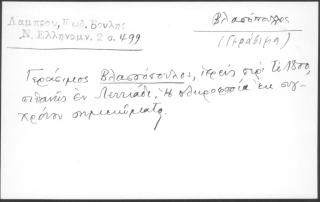 Λάμπρου, Κωδ. Βουλής
Ν. Ελληνομν. 2 σ. 499
Βλασόπουλος
(Γεράσιμος)
Γεράσιμος Βλασσόπουλος, ιερεύς περί τα 1800,
πιθανώς εν Λευκάδι, η πληροφορία εκ συγ-
χρόνου σημειώματος.